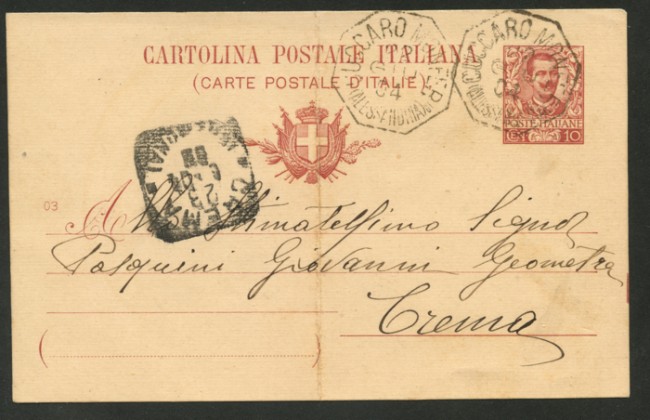 CARTOLINA POSTALE ITALIANA
(CARTE POSTALE D'ITALIE)
CUCCARO MONFER
(ALESSANDRIA)
04
CUCCARO MONFER
(ALESSANDRIA)
POSTE ITALIANE
CENT. 10
CREMA
23
03
All' Stimatissimo Signor
Pasquini Giovanni Geometra
Crema